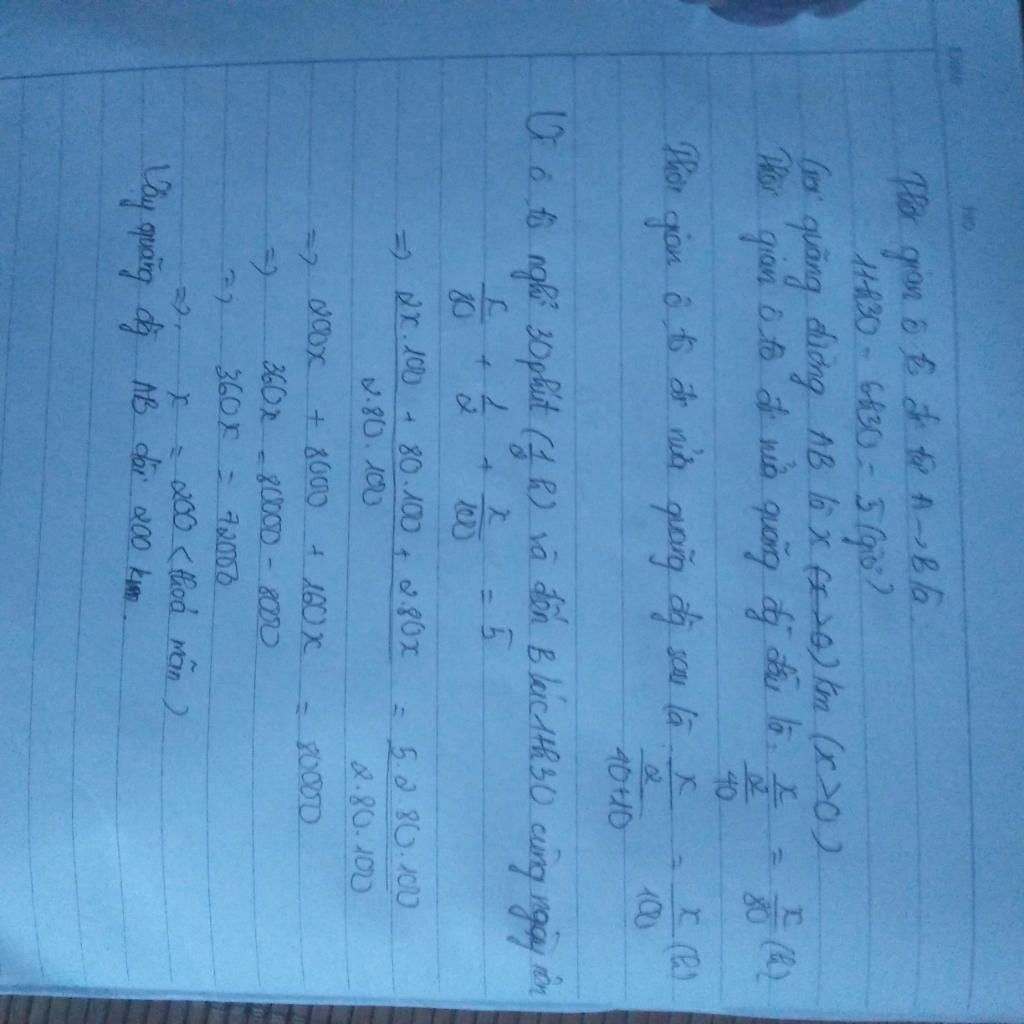 NO
Thời gian ô tô đi từ A→B là
11h30 - 6h30 = 5 (giờ)
Gọi quãng đường AB là x km (x > 0)
Thời gian ô tô đi nửa quãng đg đầu là: x/2/40 = x/80 (h)
Thời gian ô tô đi nửa quãng đg sau là x/2/40+10 = x/100 (h)
Vì ô tô nghỉ 30 phút (1/2 h) và đến B lúc 11h30 cùng ngày nên
x/80 + 1/2 + x/100 = 5
=> 2x.100 + 80.100 + 2.80x/2.80.100 = 5.2.80.100/2.80.100
=> 200x + 8000 + 160x = 80000
=> 360x = 80000 - 8000
=> 360x = 72000
=> x = 200 (thoả mãn)
Vậy quãng đg AB dài 200 km.